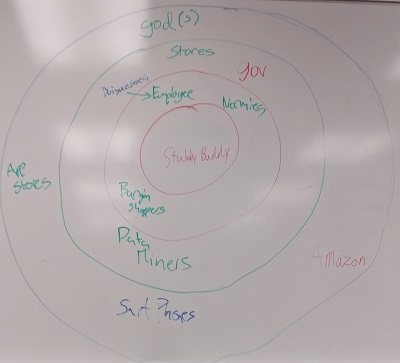 god(s)
Stores
Gov
Buisnesses
Employee
Normies
Stubby Buddy
App
Stores
Bargin
Shoppers
Data
Miners
Amazon
Smart Phones